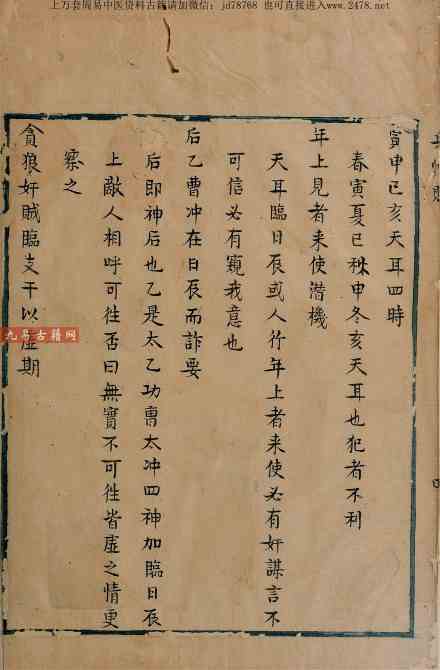 上万套周易中医资料古籍请加微信：jd78768 也可直接进入www.2478.net
寅申巳亥天耳四時
春寅夏巳秋申冬亥天耳也犯者不利
年上見者来使潜機
天耳臨日辰或人行年上者来使必有奸謀言不
可信必有窺我意也
后乙曹冲在日辰而詐要
后即神后也乙是太乙功曹太冲四神加臨日辰
上敵人相呼可徃否曰無實不可徃皆虛之情更
察之
貪狼奸賊臨支干以虛期
九易古籍网